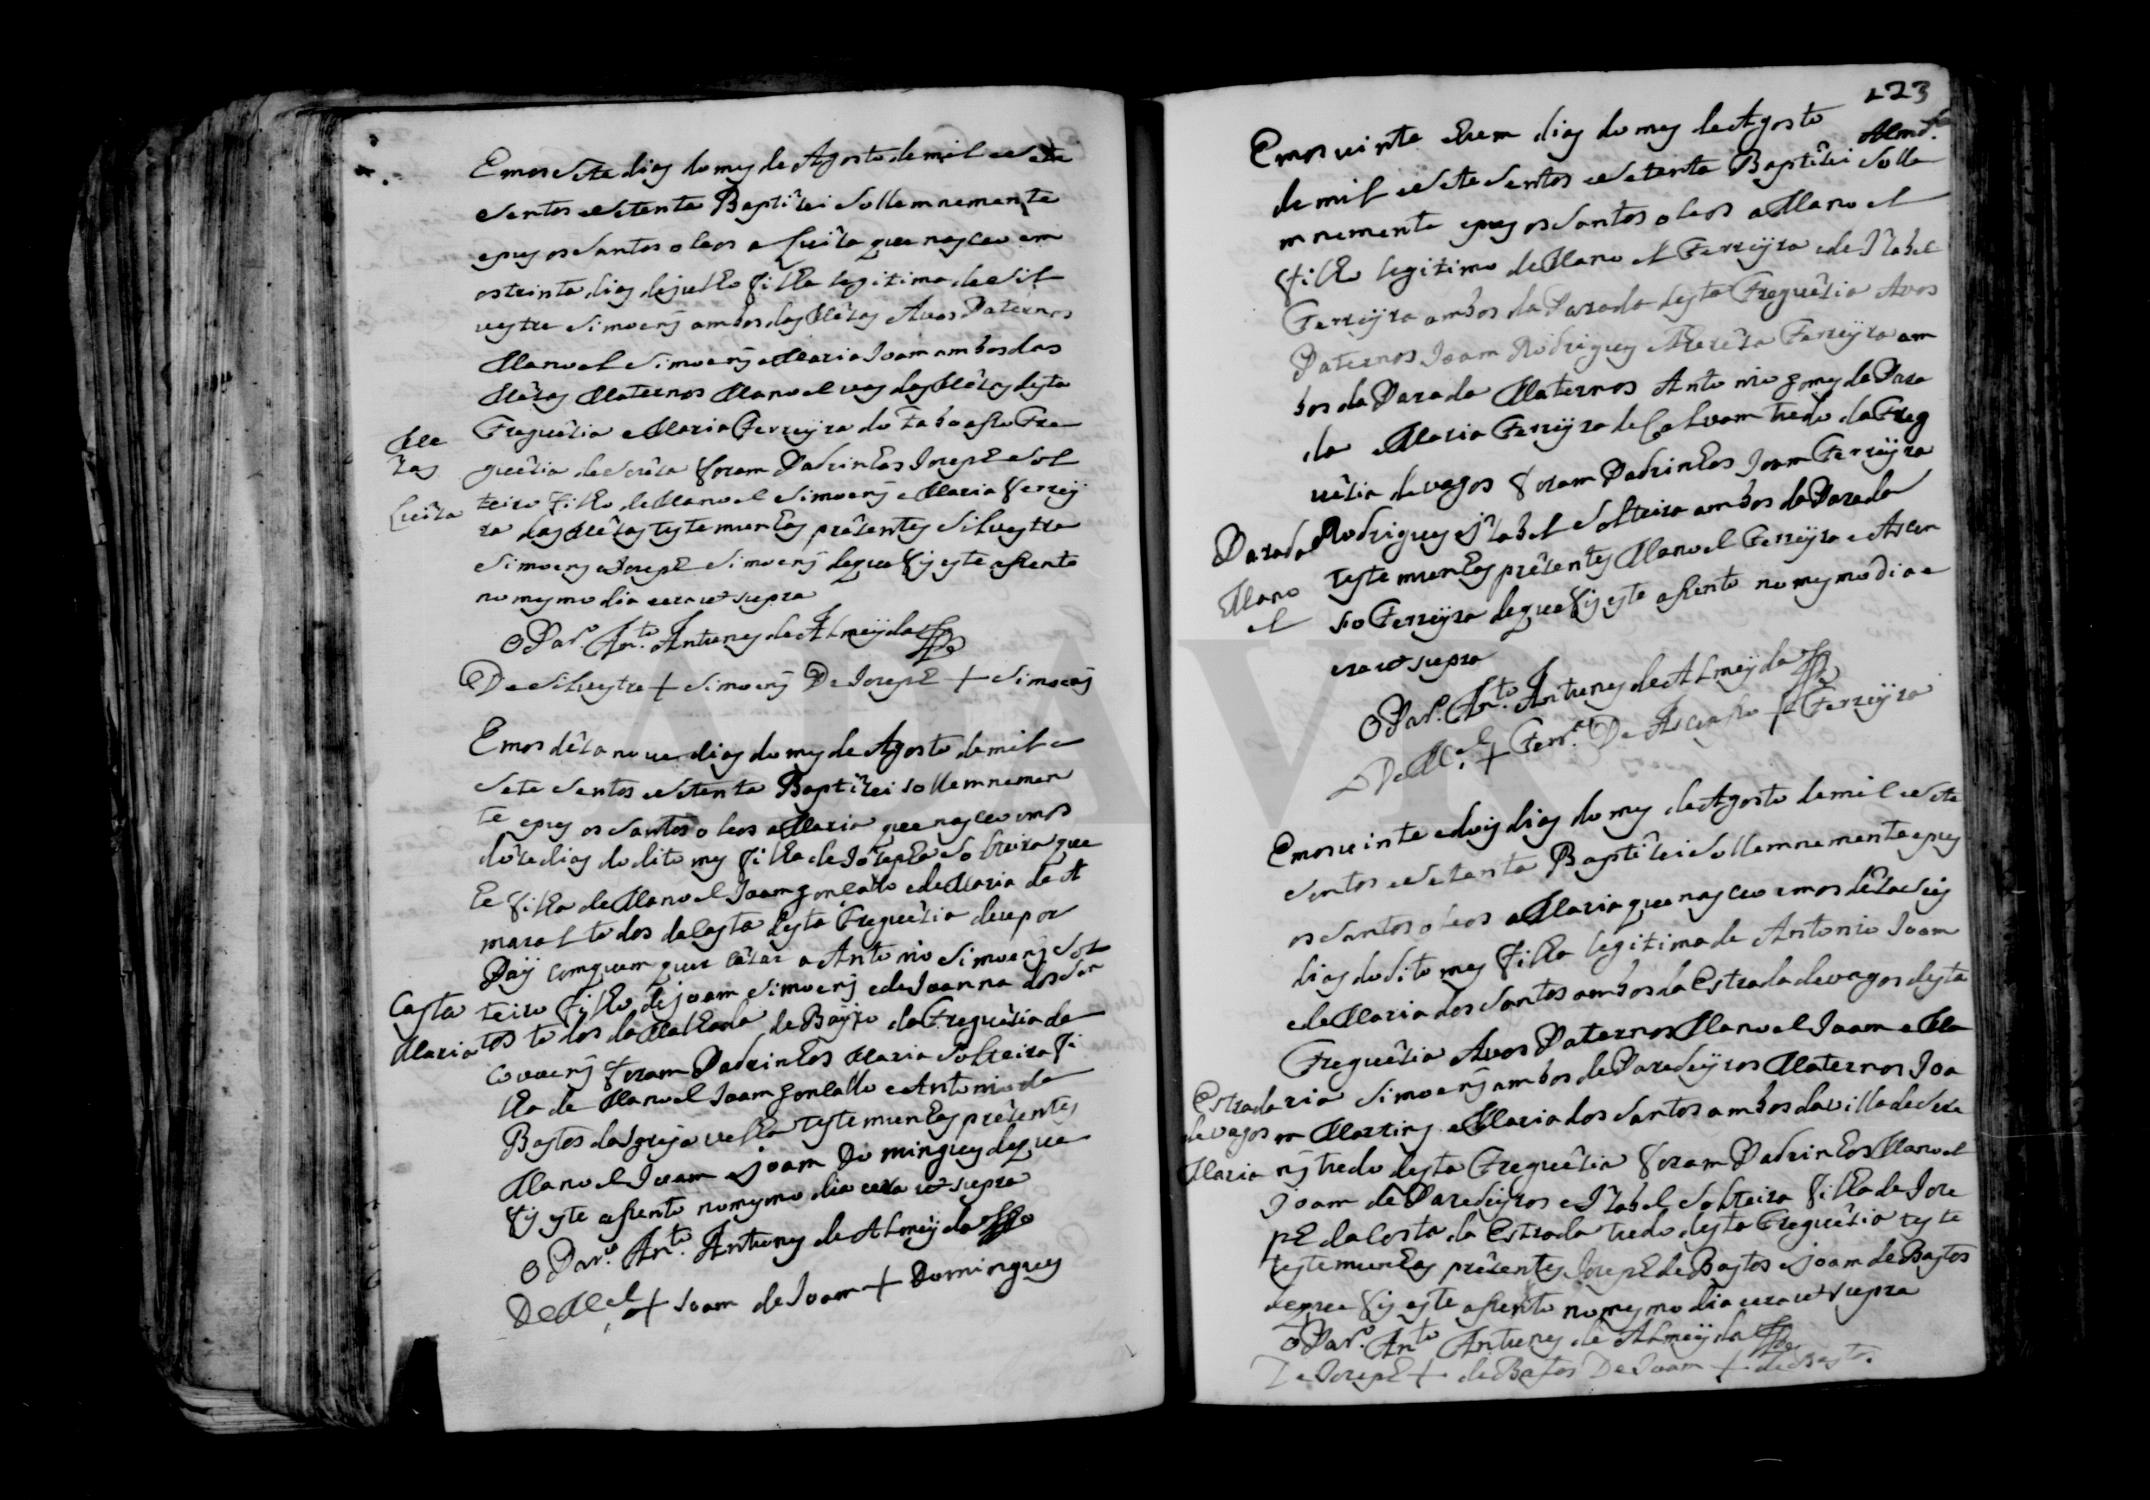 Emos sete dias do mes de Agosto de mil e sete
sentos e setenta Baptizei sollemnemente
e pus os santos oleos a Luiza que nasceo em
os trinta dias de julho filha legitima de Sil
vestre Simoens ambos das Mezas Avos Paternos
Manoel Simoens e Maria Joam ambos das
Mezas Maternos Manoel vas das Mezas desta
Freguezia e Maria Ferreyra do Fre
guezia de foram Padrinhos Joseph sol
teiro filho de Manoel Simoens e Maria Ferrey
ra das Mezas testemunhas prezentes Silvestre
Simoens e Joseph Simoens de que fis este asento
no mesmo dia era ut supra
O Par.º An.to Antunes de Almeyda
De Silvestre + Simoens De Joseph + Simoens
Me
zas
Luiza
Emos dezanove dias do mes de Agosto de mil e
sete sentos e setenta Baptizei sollemnemen
te e pus os santos oleos a Maria que nasceo emos
doze dias do dito mes filha de Jozepha solteira que
he filha de Manoel Joam gonsallo e de Maria de A
maral todos da Casta desta Freguezia deu por
Pay com quem quer cazar a Antonio Simoens sol
teiro filho de joam Simoens e de Joanna dos San
tos todos da Malhada de Bayxo da Freguezia de
Covoens foram Padrinhos Maria solteira fi
lha de Manoel Joam gonsallo e Antonio de
Bastos da Igreja velha testemunhas prezentes
Manoel Joam e joam Domingues de que
fis este asento no mesmo dia era ut supra
O Par.º An.to Antunes de Almeyda
De M.el + Joam de Joam + Domingues
Casta
Maria
123
Emos vinte e hum dias do mes de Agosto
de mil e sete sentos e setenta Baptizei solle
mnemente e pus os santos oleos a Manoel
filho legitimo de Manoel Ferreyra e de Izabel
Ferreyra ambos da Parada desta Freguezia Avos
Paternos Joam Rodrigues e Ferreyra am
bos da Parada Maternos Antonio gomes da Para
da e Maria Ferreyra de Calvam tudo da Freg
uezia de vagos foram Padrinhos Joam Ferreyra
Rodrigues e Izabel solteira ambos da Parada
testemunhas prezentes Manoel Ferreyra e Ascen
so Ferreyra de que fis este asento no mesmo dia e
era ut supra
O Par.º An.to Antunes de Almeyda
De M.el + Ferr.a De Ascenso + Ferreyra
Parada
Mano
el
Emos vinte e dois dias do mes de Agosto de mil e sete
sentos e setenta Baptizei sollemnemente e pus
os santos oleos a Maria que nasceo emos dezaseis
dias do dito mes filha legitima de Antonio Joam
e de Maria dos Santos ambos da Estrada de vagos desta
Freguezia Avos Paternos Manoel Joam e Ma
ria Simoens ambos de Paredeyros Maternos Joa
m Martins e Maria dos Santos ambos da villa de
tudo desta Freguezia foram Padrinhos Manoel
Joam de Paredeyros e Izabel solteira filha de Jose
ph da Costa da Estrada tudo desta Freguezia teste
testemunhas prezentes Joseph de Bastos e joam de Bastos
de que fis este asento no mesmo dia era ut supra
O Par.º An.to Antunes de Almeyda
De Joseph + de Bastos De Joam + de Bastos
Estrada
de vagos
Maria
ADAVR